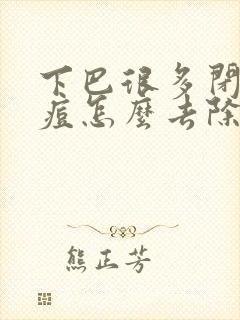 下巴很多閉
痘怎麼去除
熊正芳